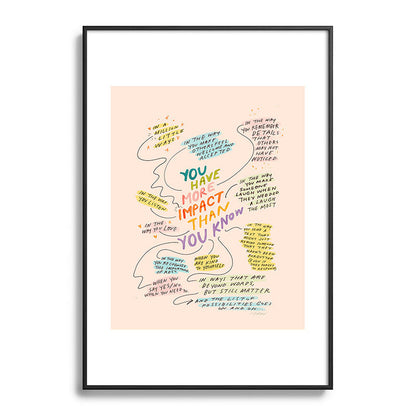 IN A
MILLION
LITTLE
WAYS
IN THE WAY
YOU MAKE
OTHERS FEEL
WELCOME AND
ACCEPTED
IN THE WAY
YOU REMEMBER
DETAILS
THAT
OTHERS
MAY NOT
HAVE
NOTICED
YOU
HAVE
MORE
IMPACT
THAN
YOU KNOW
IN THE WAY
YOU MAKE
SOMEONE
LAUGH WHEN
THEY NEEDED
A LAUGH
THE MOST
IN THE WAY
YOU LISTEN
IN THE
WAY YOU LOVE
IN THE
YOU SEND A
TEXT THAT
MIGHT JUST
REMIND SOMEONE
THAT THEY
IN THE WAY
YOU RECOGNIZE
THE IMPORTANCE
OF REST
WHEN YOU
ARE KIND
TO YOURSELF
WHEN YOU
SAY YES/NO
WHEN YOU NEED TO
IN WAYS THAT ARE
BEYOND WORDS,
BUT STILL MATTER
AND THE LIST OF
POSSIBILITIES GOES
ON AND ON